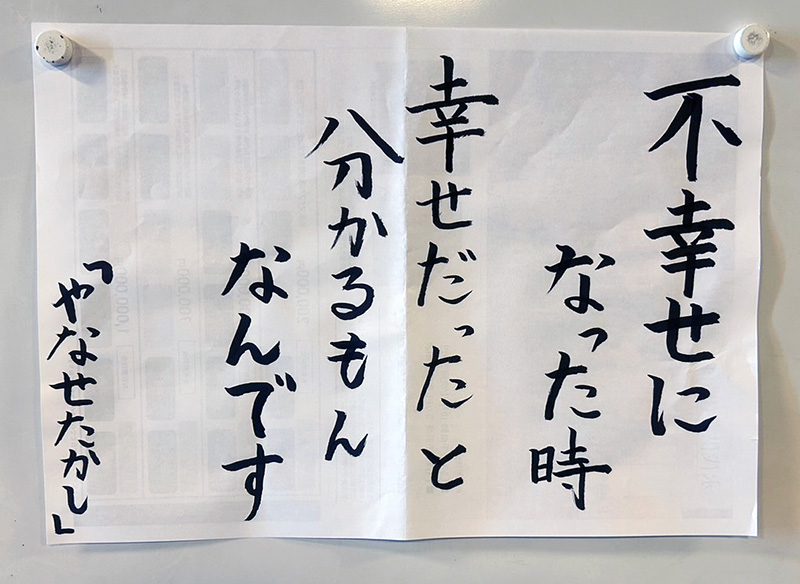 不幸せに
なった時
幸せだったと
分かるもん
なんです
「やなせたかし」